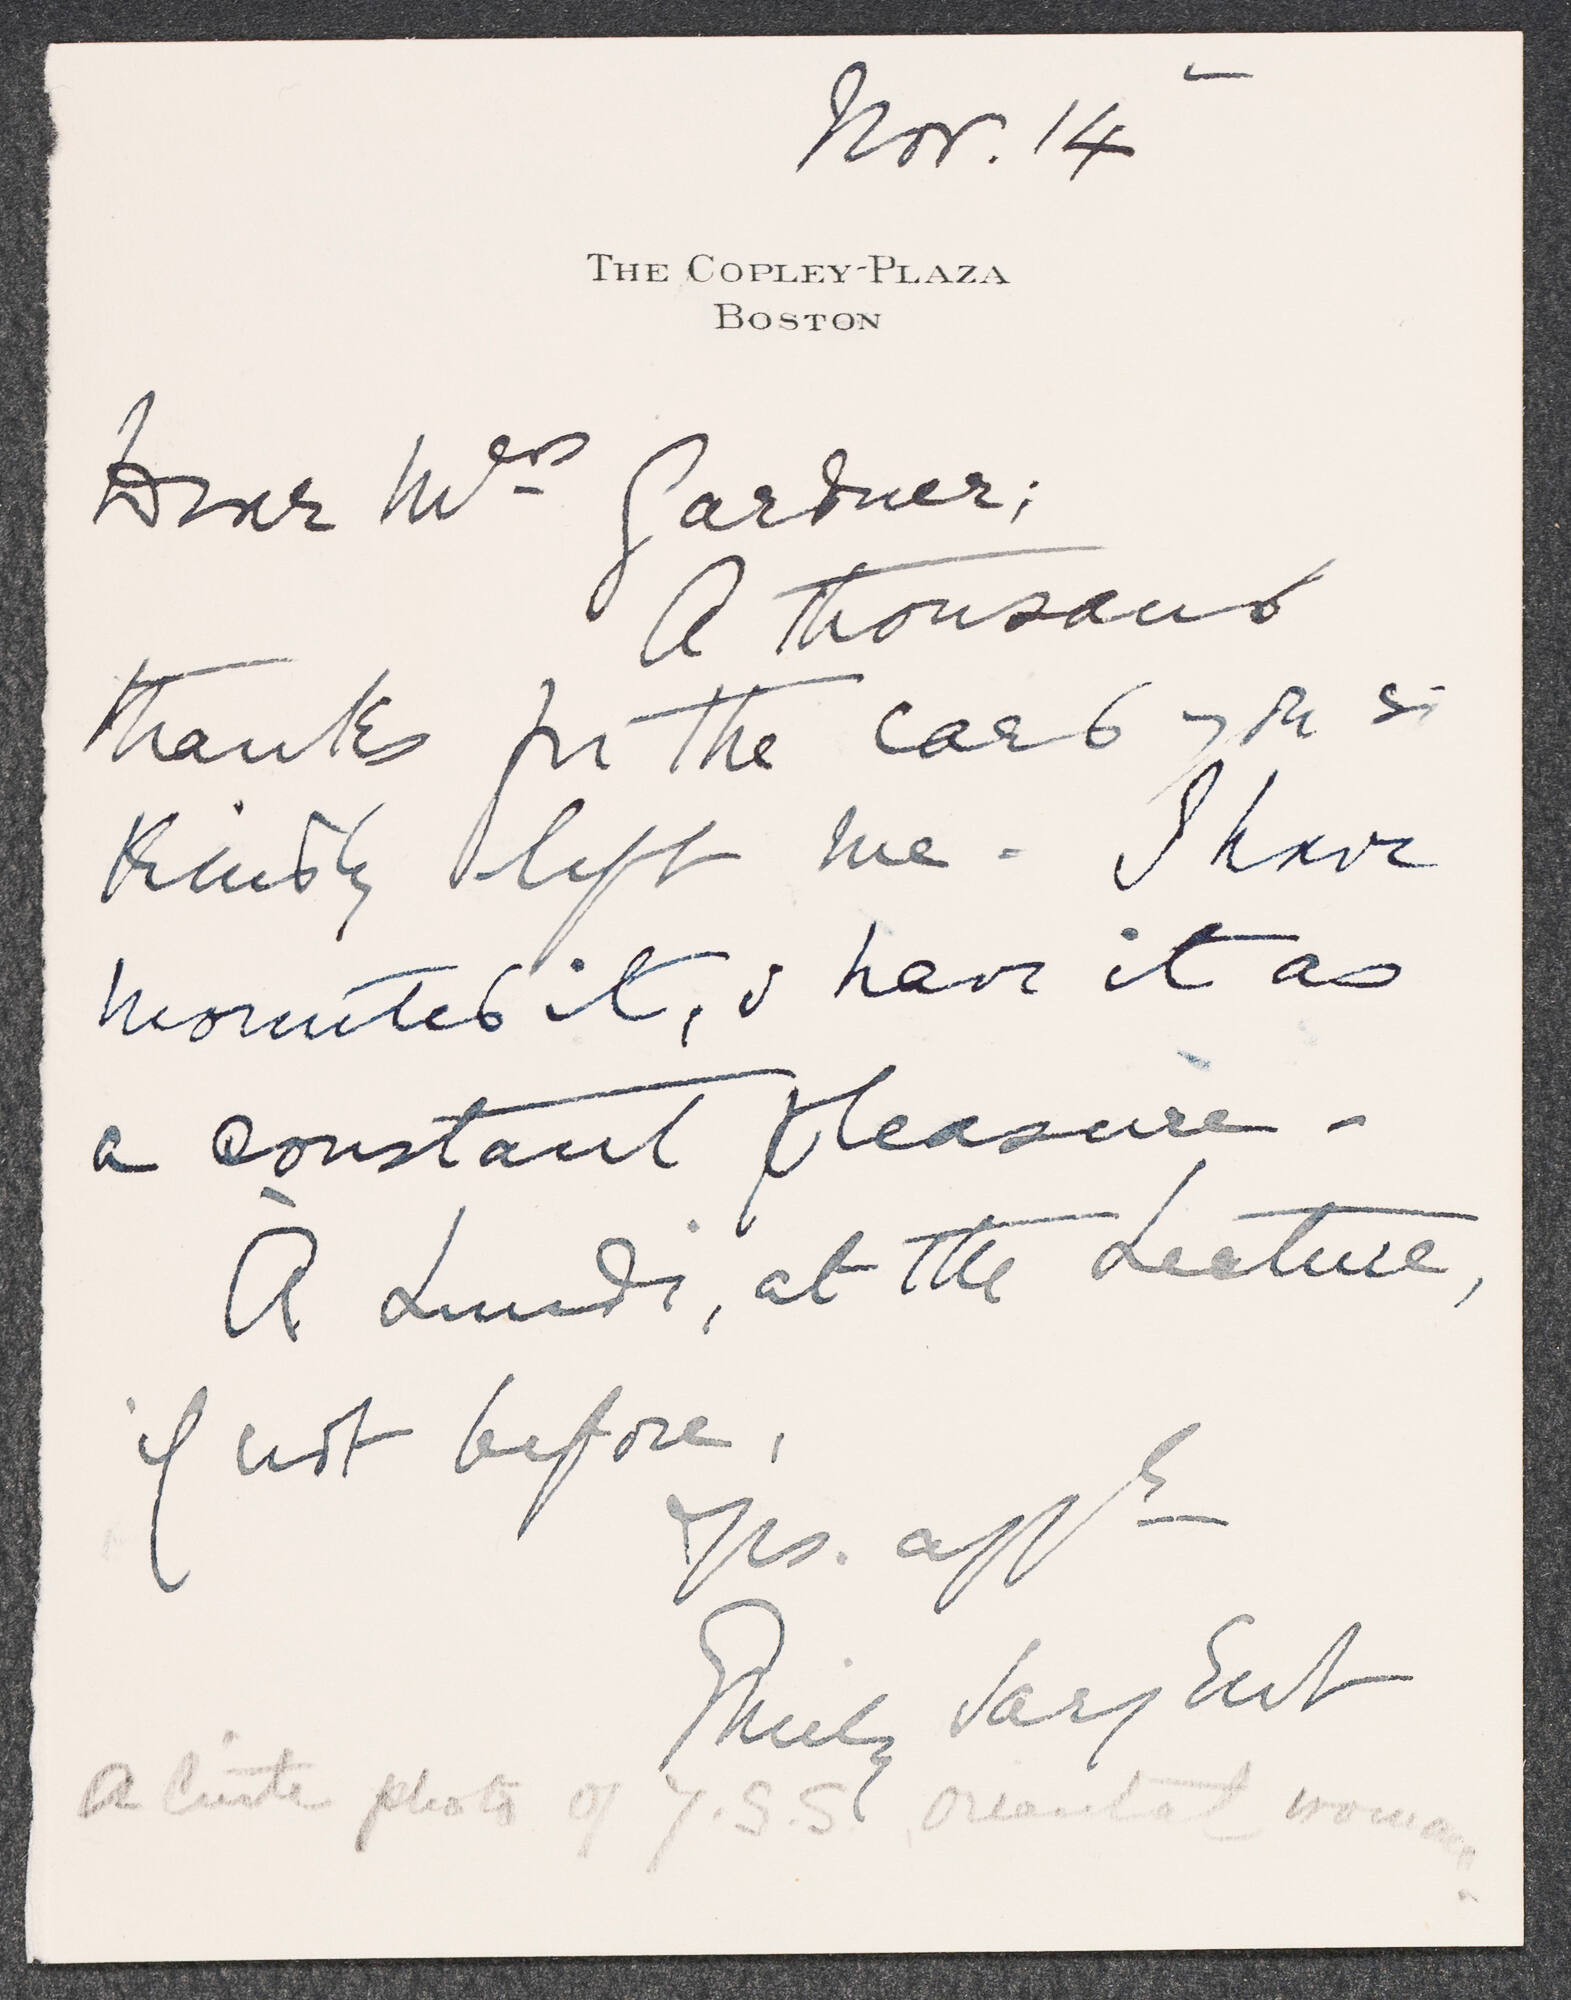 Nov. 14
THE COPLEY-PLAZA
BOSTON
Dear Mrs Gardner;
A thousand
thanks for the card you so
kindly left me - I have
mounted it, & have it as
a constant pleasure -
À Lundi, at the Lecture,
if not before,
Yrs. affly
Emily Sargent
a photo of J.S.S. oriental woman.